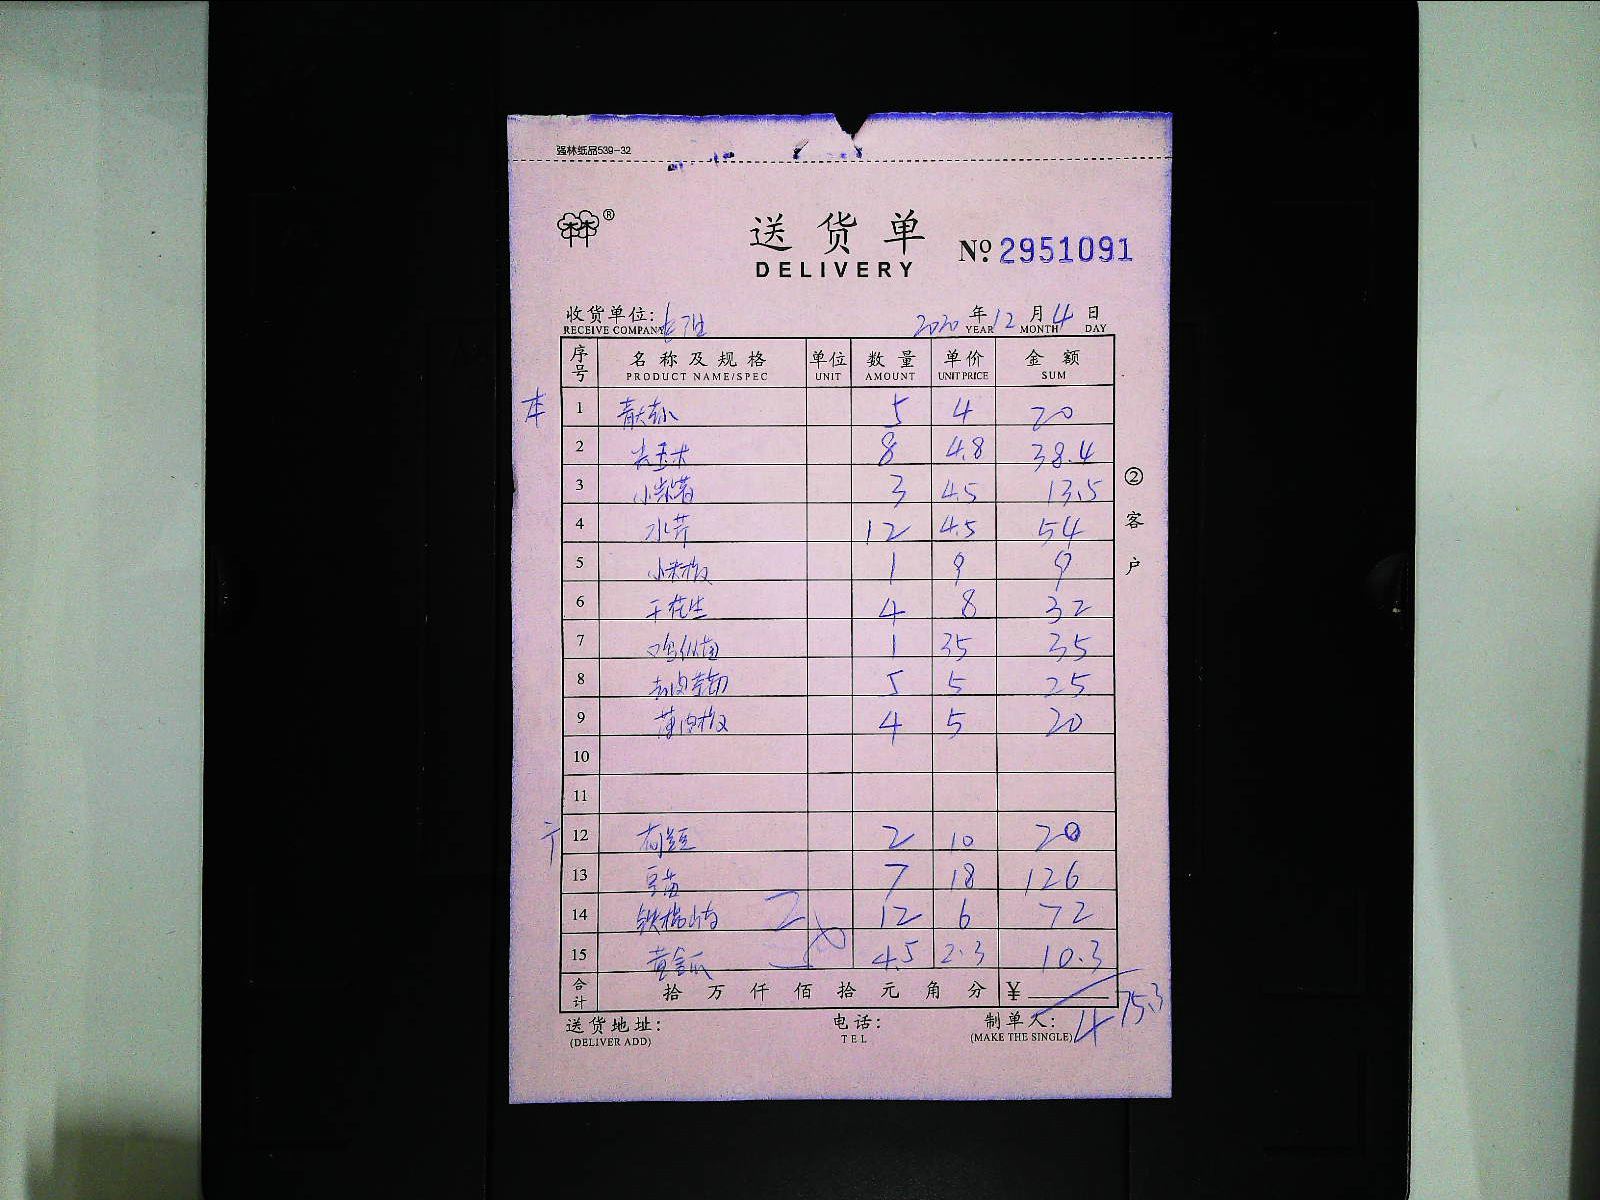 强林纸品539-32
®
送货单
DELIVERY
Nº 2951091
收货单位:
RECEIVE COMPANY
2020 年 12 月 4 日
YEAR MONTH DAY
序号 名称及规格 单位 数量 单价 金额
PRODUCT NAME/SPEC UNIT AMOUNT UNIT PRICE SUM
本 1 5 4 20
2 尖玉米 8 4.8 38.4
3 小紫薯 3 4.5 13.5
4 水芹 12 4.5 54
5 小米椒 1 9 9
6 干花生 4 8 32
7 鸡纵菌 1 35 35
8 5 5 25
9 薄皮椒 4 5 20
10
11
12 荷兰豆 2 10 20
13 豆苗 7 18 126
14 铁棍山药 12 6 72
15 黄金瓜 4.5 2.3 10.3
合计 拾 万 仟 佰 拾 元 角 分 ¥
475.3
② 客户
送货地址: 电话: 制单人:
(DELIVER ADD) TEL (MAKE THE SINGLE)